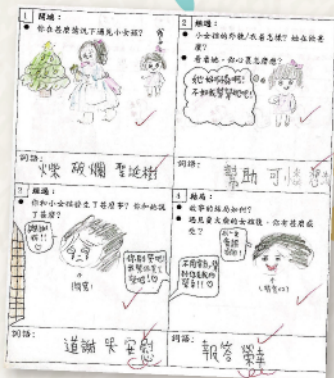 1 開端：
● 你在甚麼情況下遇見小女孩？
詞語：
燦 破爛 聖誕樹
2 經過：
● 小女孩的外貌/衣着怎樣？她在做甚麼？
● 看着她，你心裏怎麼想？
她好可憐啊！
不如我幫她吧！
詞語：
幫助 可憐 想
3 經過：
● 你和小女孩發生了甚麼事？你和她說了甚麼？
謝謝你！！
詞語：
道謝 哭 安慰
4 結局：
● 故事的結局如何？
● 遇見賣火柴的女孩後，你有甚麼感受？
詞語：
報答 榮幸